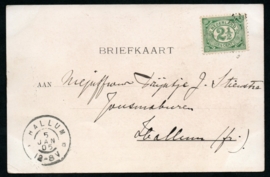 BRIEFKAART
2½
Aan
Mejuffrouw Trijntje J. Stienstra
Hallum (fr.)
HALLUM
5
JAN
05
12-8V